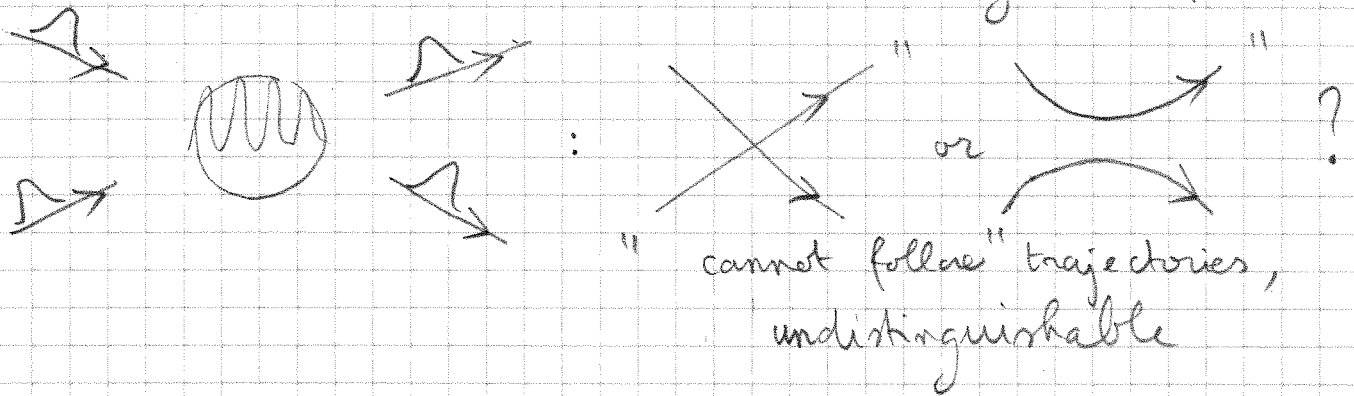 " or " ?
" cannot follow" trajectories,
undistinguishable